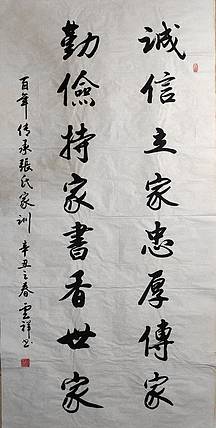 誠信立家忠厚傳家
勤儉持家書香世家
百年传承張氏家训 辛丑之春 雲祥书